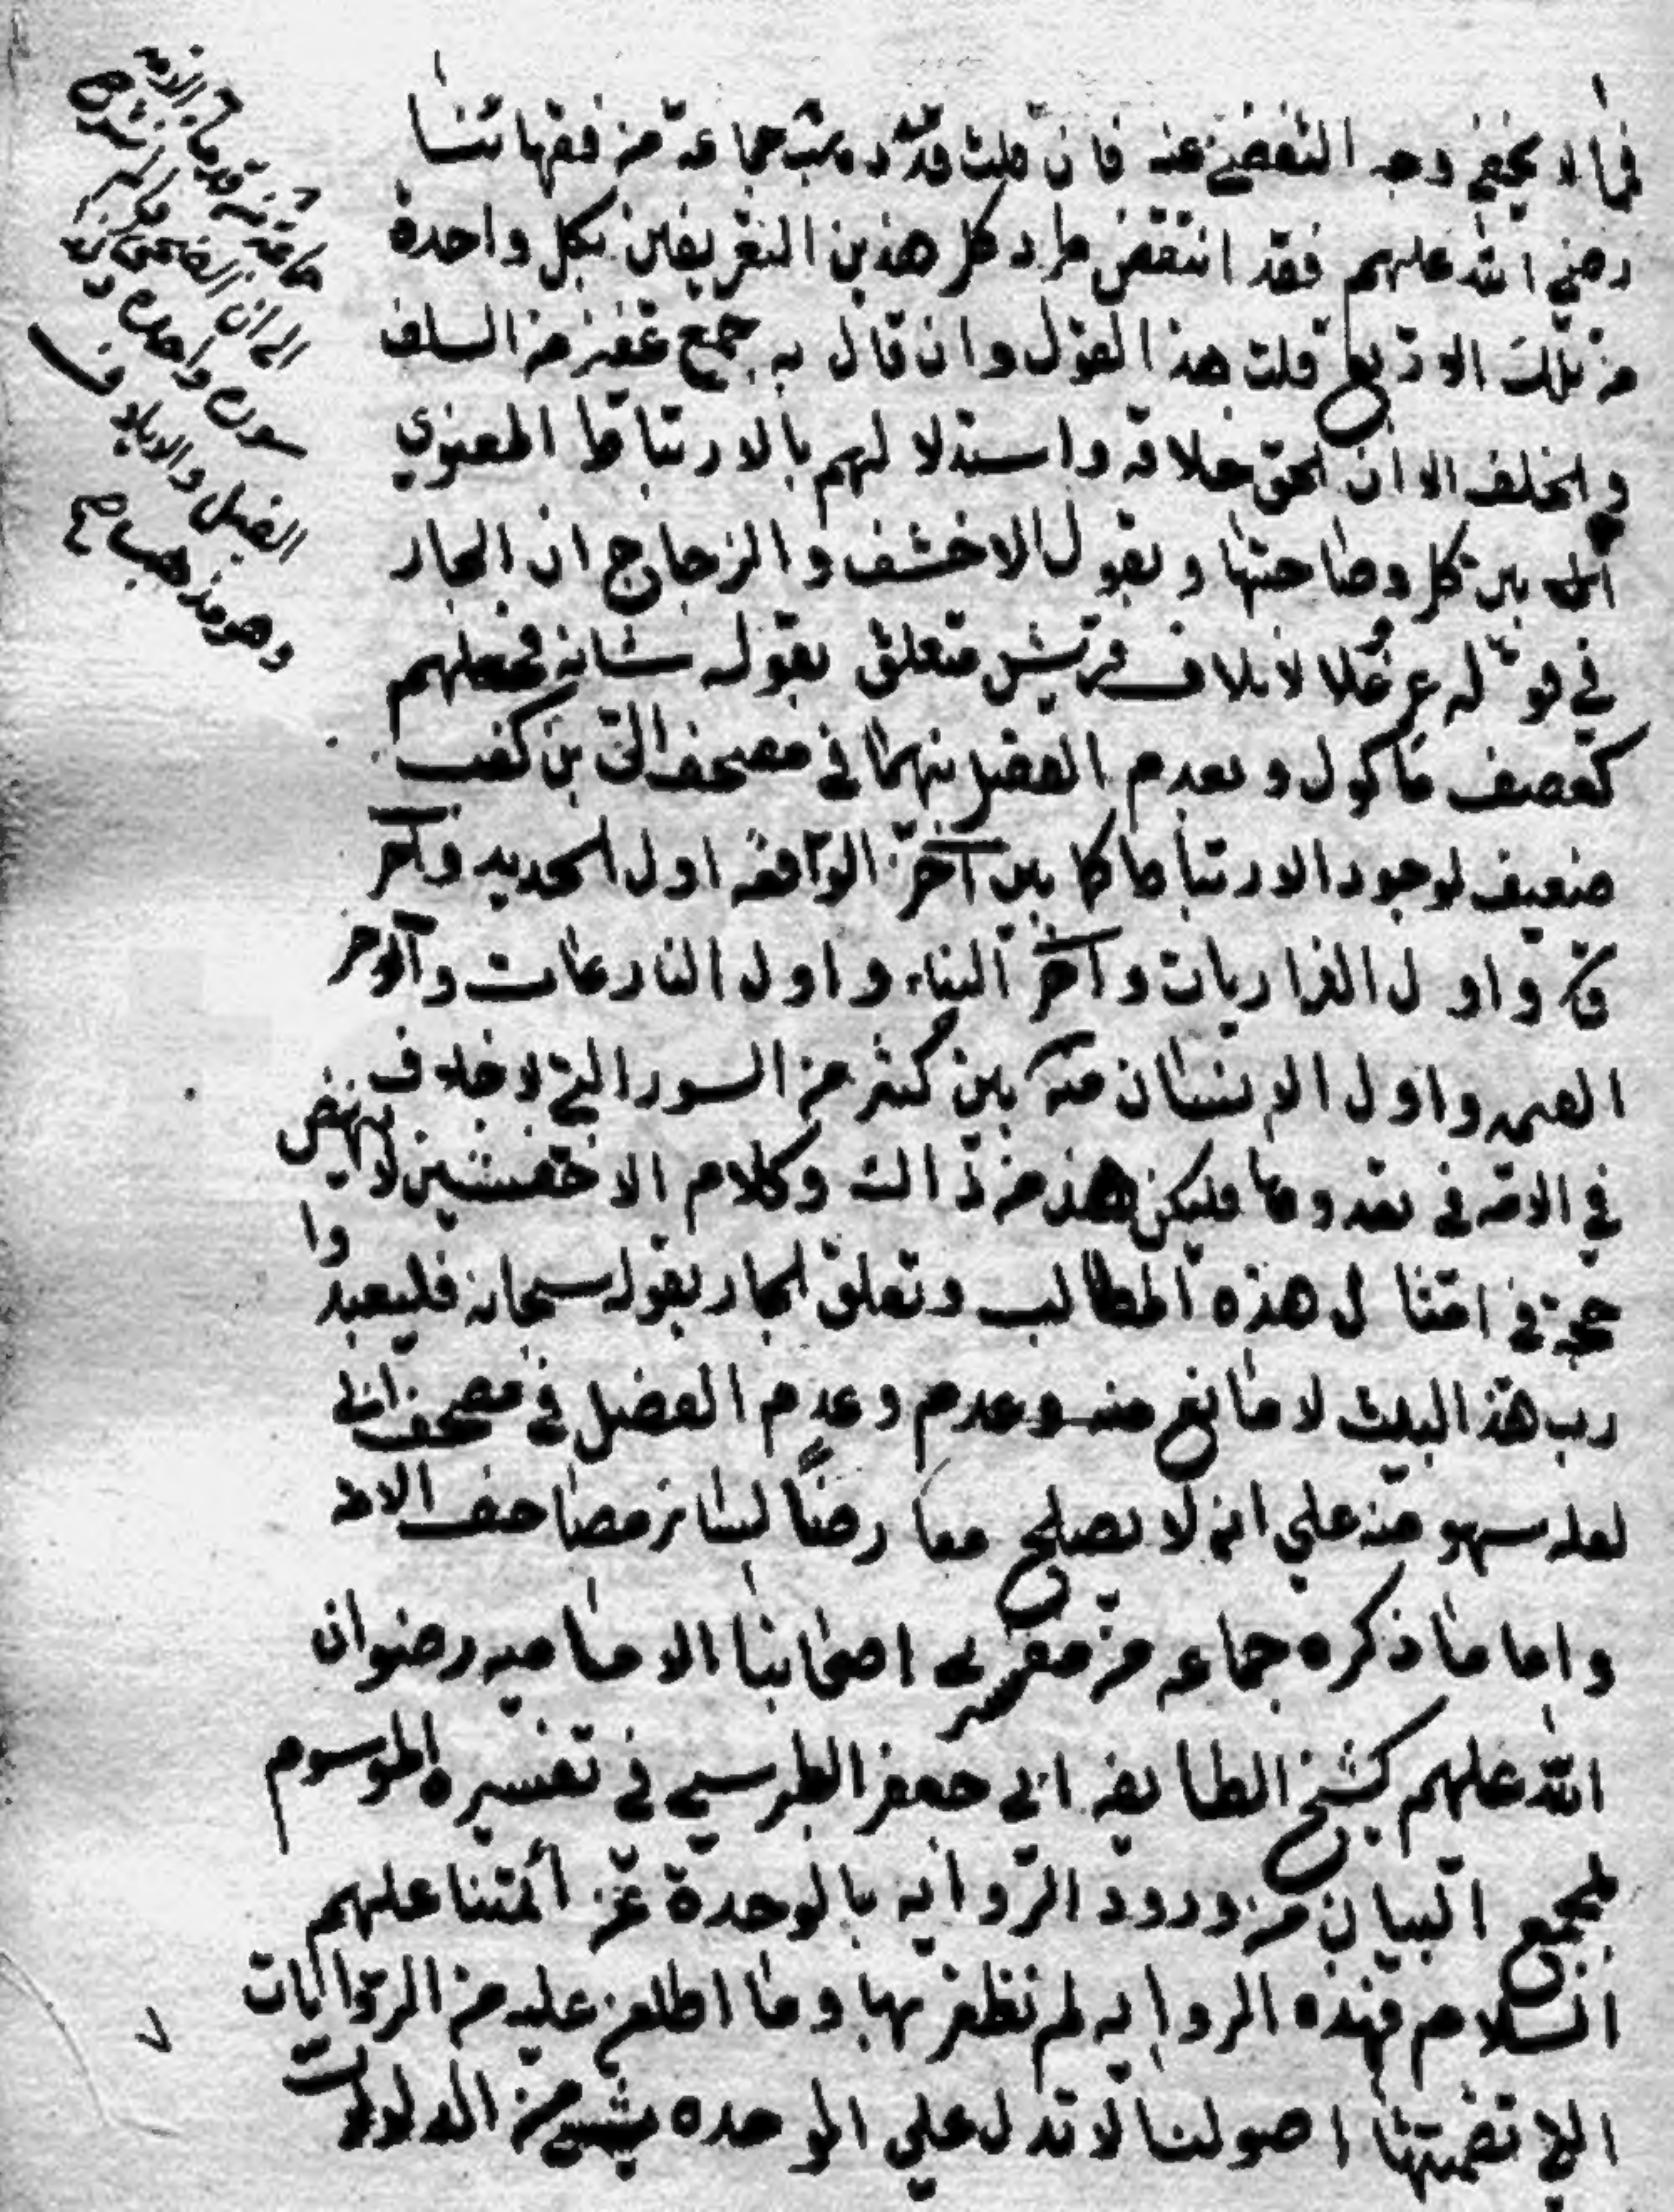 مما لا يخفى وجه التفصي عنه فان قلت قد ذهب جماعة من فقهائنا
رضي الله عليهم فقد انتقض طرد كل هذين التعريفين بكل واحدة
من تلك الاربع قلت هذا القول وان قال به جمع غفير من السلف
والخلف الا ان الحق خلافه واستدلالهم بالارتباط المعنوي
بين كل وصاحبتها وبقول الاخفش والزجاج ان الجار
في قوله عز وعلا لايلاف قريش متعلق بقوله شانه فجعلهم
كعصف ماكول وبعدم الفصل بينهما في مصحف ابي بن كعب
ضعيف لوجود الارتباط كما بين آخر الواقعة اول الحديد وآخر
ق واول الذاريات وآخر النباء واول النازعات وآخر
واول الانسان بين كثير من السور التي لا خلاف
في الامة في تعددها فليكن هذا من ذاك وكلام الاخفشين لا ينهض
حجة في امثال هذه المطالب وتعلق الجار بقوله سبحانه فليعبدوا
رب هذا البيت لا مانع منه وعدم وعدم الفصل في مصحف ابي
لعله سهو منه علي انه لا يصلح معارضاً لسائر مصاحف الامة
واما ما ذكره جماعه من مفسري اصحابنا الاماميه رضوان
الله عليهم كشيخ الطايفه ابي جعفر الطبرسي في تفسيره الموسوم
بمجمع البيان من ورود الروايه بالوحدة عن أئمتنا عليهم
السلام فهذه الروايه لم نظفر بها وما اطلعنا عليه من الروايات
التي تضمنتها اصولنا لا تدل علي الوحده بشيء من الدلالات
الى ان الضحى
سورة واحدة و
الفيل والايلاف
وهو مذهب